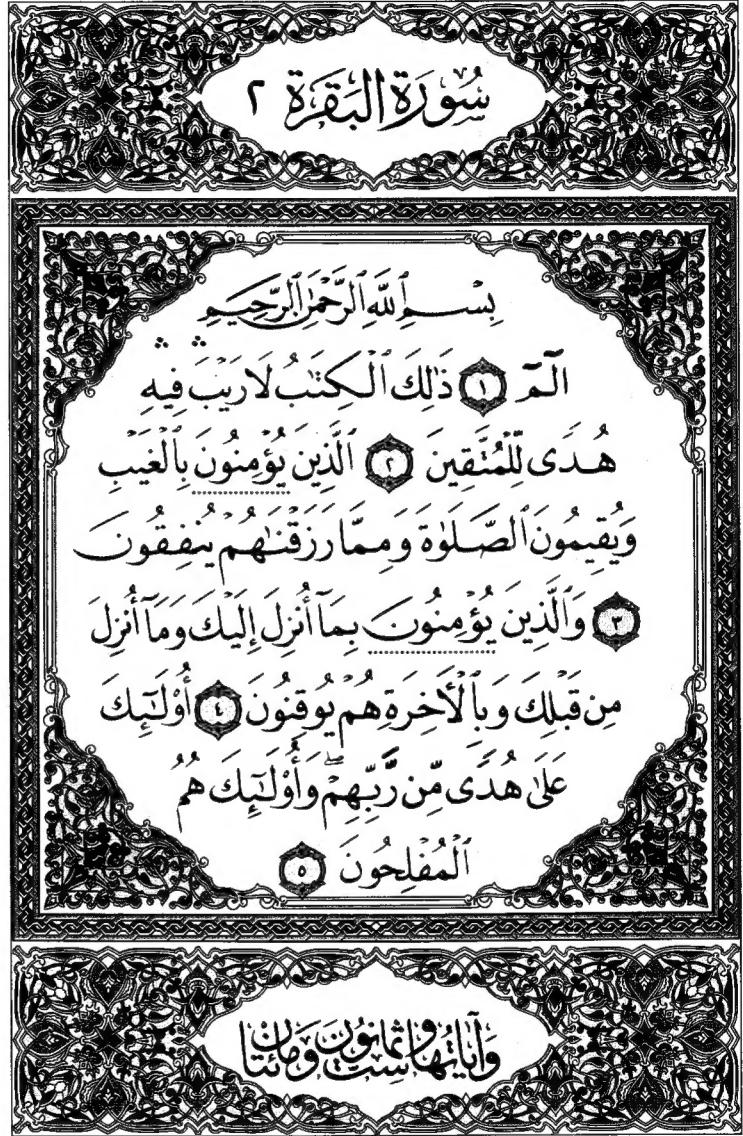 سُورَةُ البَقَرَةِ ٢
بِسْمِ ٱللَّهِ ٱلرَّحْمَٰنِ ٱلرَّحِيمِ
الٓمٓ ١ ذَٰلِكَ ٱلْكِتَٰبُ لَا رَيْبَ ۛ فِيهِ ۛ
هُدًى لِّلْمُتَّقِينَ ٢ ٱلَّذِينَ يُؤْمِنُونَ بِٱلْغَيْبِ
وَيُقِيمُونَ ٱلصَّلَوٰةَ وَمِمَّا رَزَقْنَٰهُمْ يُنفِقُونَ
٣ وَٱلَّذِينَ يُؤْمِنُونَ بِمَآ أُنزِلَ إِلَيْكَ وَمَآ أُنزِلَ
مِن قَبْلِكَ وَبِٱلْأَخِرَةِ هُمْ يُوقِنُونَ ٤ أُو۟لَٰٓئِكَ
عَلَىٰ هُدًى مِّن رَّبِّهِمْ ۖ وَأُو۟لَٰٓئِكَ هُمُ
ٱلْمُفْلِحُونَ ٥
وَآيَاتُهَا سِتٌّ وَثَمَانُونَ وَمِائَتَانِ